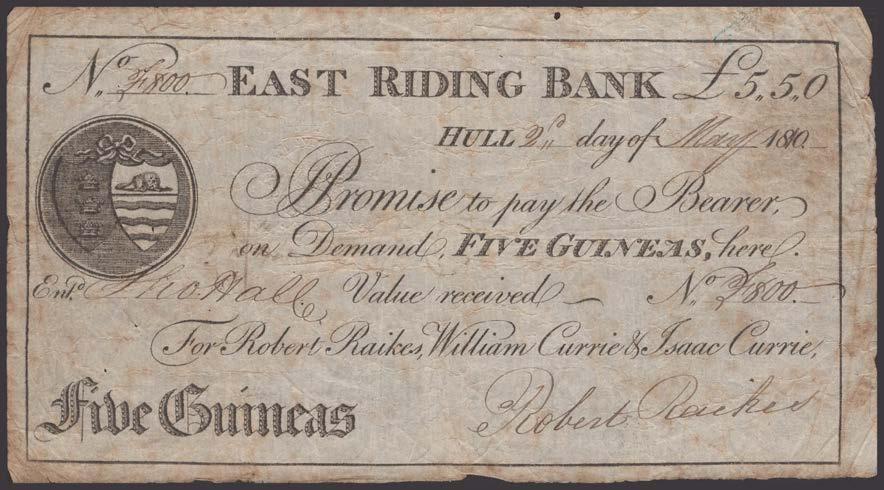 No. F800. EAST RIDING BANK £5,,5,,0
HULL 2d day of May 1810
I Promise to pay the Bearer,
on Demand, FIVE GUINEAS, here.
Entd. Tho. Hall. Value received No. F800.
For Robert Raikes, William Currie & Isaac Currie,
Five Guineas Robert Raikes